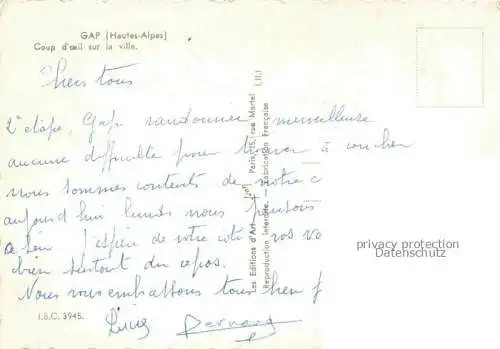 GAP (Hautes-Alpes)
Coup d'œil sur la ville.
Chers tous
2e étape, Gap randonnée merveilleuse
aucune difficulté pour trouver à coucher
nous sommes contents de notre c
aujourd'hui lundi nous
J'espère de votre côté vos va
bien surtout du repos.
Nous vous embrassons tous bien f
Bernard
I.B.C. 3945.
Les Editions d'Art Paris, 15, rue Martel (II.)
Reproduction Interdite. — Fabrication Française
privacy protection
Datenschutz